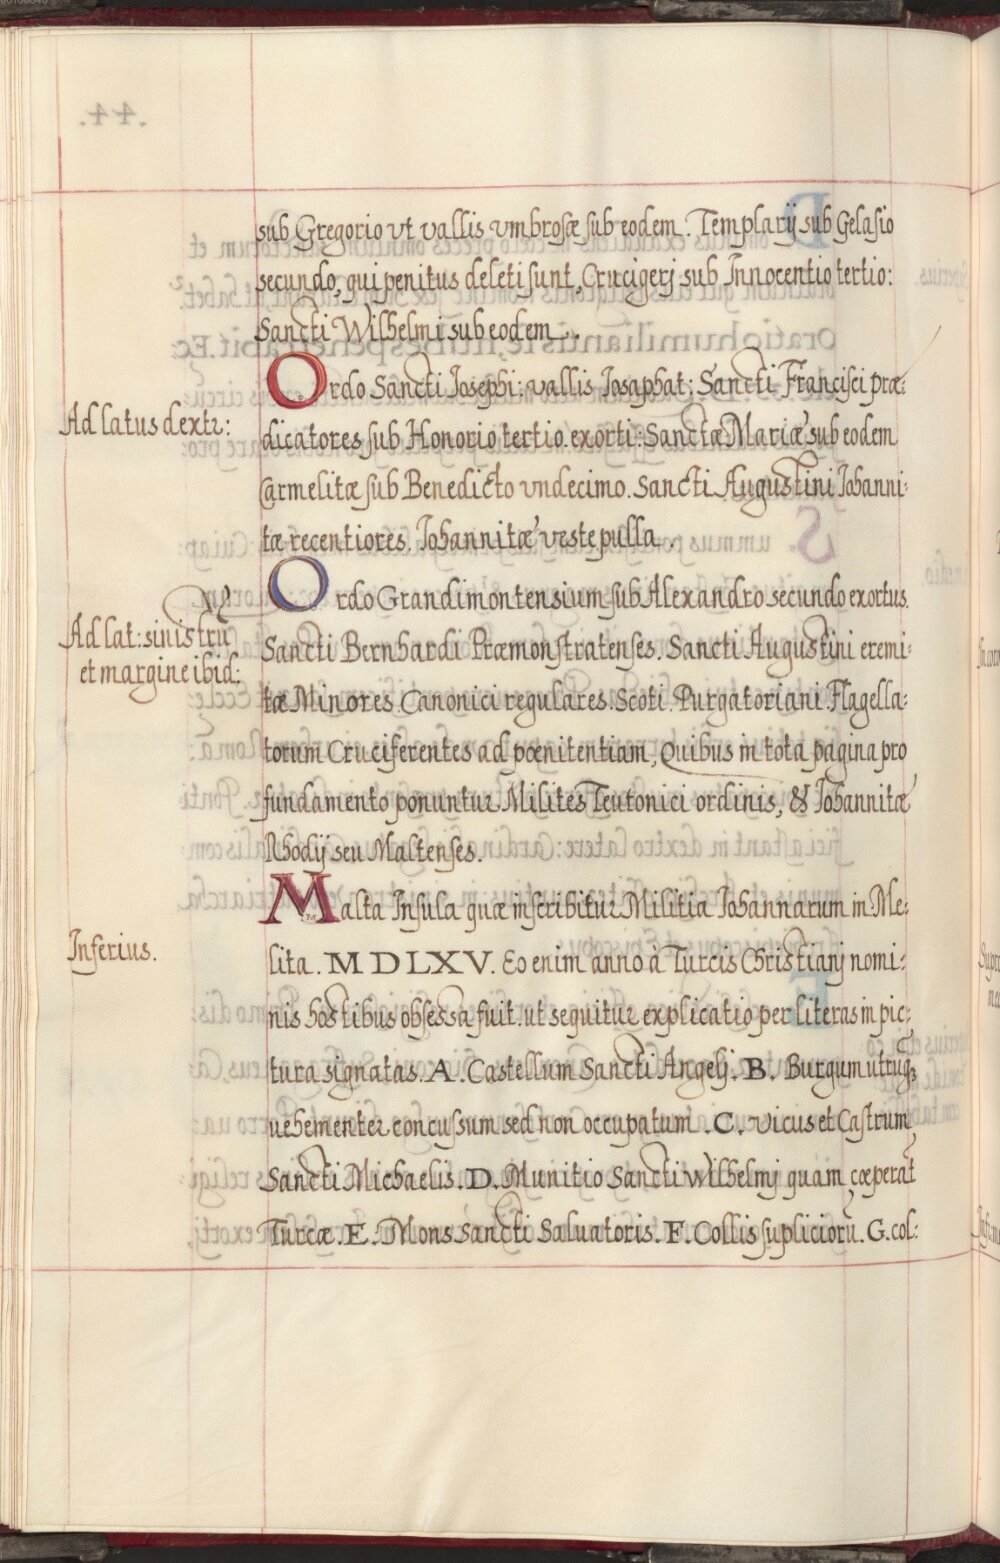 sub Gregorio vt vallis vmbrosæ sub eodem. Templarij sub Gelasio
secundo, qui penitus deleti sunt, Crucigerj sub Innocentio tertio:
Sancti Wilhelmi sub eodem.
Ordo Sancti Josephi: vallis Josaphat: Sancti Francisci præ:
Ad latus dextr:
dicatores sub Honorio tertio exorti: Sanctæ Mariæ sub eodem
Carmelitæ sub Benedicto vndecimo. Sancti Augustini Johanni:
tæ recentiores. Johannitæ veste pulla.
Ordo Grandimontensium sub Alexandro secundo exortus.
Ad lat: sinistrū
Sancti Bernhardi Præmonstratenses. Sancti Augustini eremi:
et margine ibid:
tæ Minores Canonici regulares. Scoti. Purgatoriani. Flagella:
torum Cruciferentes ad pœnitentiam, Quibus in tota pagina pro
fundamento ponuntur Milites Teutonici ordinis, & Johannitæ
Rhodij seu Maltenses.
Malta Insula quæ inscribitur Militia Johannarum in Me:
Inferius.
lita. MDLXV. Eo enim anno à Turcis Christianj nomi:
nis hostibus obsessa fuit. ut sequitur explicatio per literas in pic:
tura signatas. A. Castellum Sancti Angelj. B. Burgum utrumq₃
uehementer concussum sed non occupatum. C. vicus et Castrum
Sancti Michaelis. D. Munitio Sancti Wilhelmj quam cæperat
Turcæ. E. Mons Sancti Saluatoris. F. Collis supliciorū. G. col: